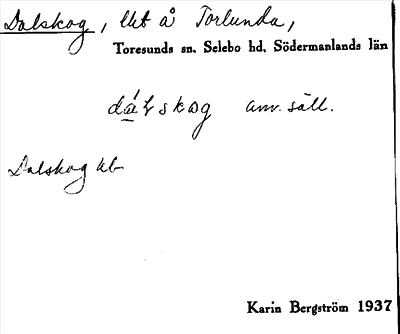 Dalskog, lht å Torlunda,
Toresunds sn. Selebo hd, Södermanlands län
dálskog anv. säll.
Dalskog kb
Karin Bergström 1937